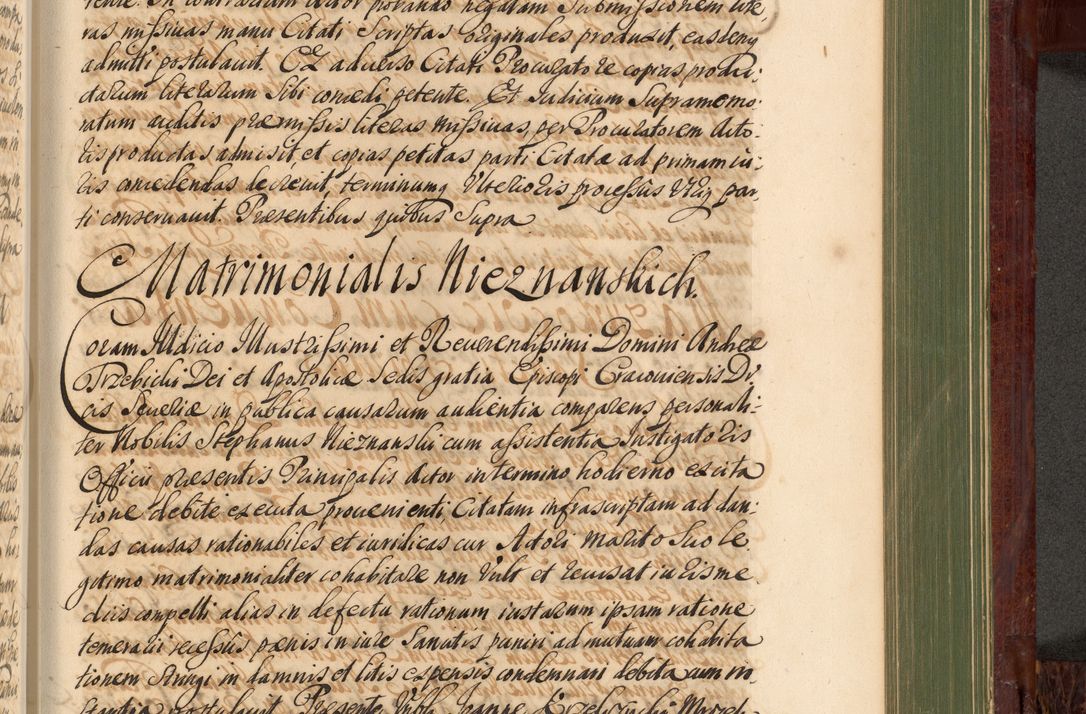 tente. In contrarium Actor probando negatam Submissionem lite,
ras missiuas manu Citati Scriptas originales produxit, easdenq
admitti postulauit. Ex aduerso Citati Procuratore copias produ:
ctarum literarum Sibi concedi petente. Et Iudicium Supramemo:
ratum auditis præmissis literas missiuas, per Procuratorem Acto:
ris productas admisit et copias petitas parti Citatæ ad primam iu:
ris concedendas decreuit, terminumq Vlterioris processus Vtriq par,
ti conseruauit. Præsentibus quibus Supra
Matrimonialis Nieznanskich.
Coram Iudicio Illustrissimi et Reuerendissimi Domini Andreæ
Trzebicki Dei et Apostolicæ Sedis gratia Episcopi Cracouiensis Du
cis Seueriæ in publica causarum audientia comparens personali:
ter Nobilis Stephanus Nieznanski cum assistentia Instigatoris
Officii præsentis Principalis Actor in termino hodierno ex cita
tione debite executa prouenienti, Citatam infrascriptam ad dan:
das causas rationabiles et iuridicas cur Actori marito Suo le
gitimo matrimonialiter cohabitare non Vult et recusat iuris me
diis compelli alias in defectu rationum iustarum ipsam ratione
temerarii recessus pænis in iure Sancitis puniri ad mutuam cohabita
tionem Stringi in damnis et litis expensis condemnari debita cum in
stantia postulauit. Præsente Nobili Ioanne